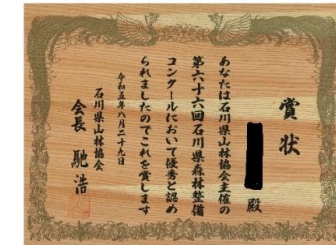 賞状
殿
あなたは石川県山林協会主催の
第六十六回石川県森林整備
コンクールにおいて優秀と認め
られましたのでこれを賞します
令和五年八月二十九日
石川県山林協会
会長 馳浩